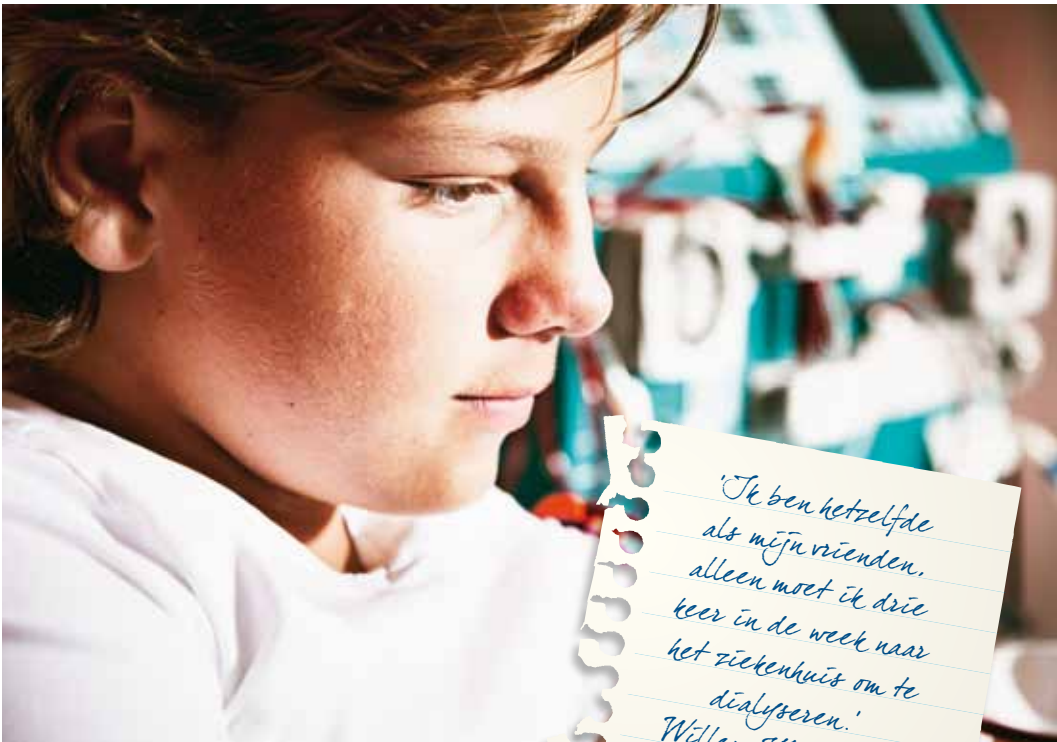 'Ik ben hetzelfde
als mijn vrienden,
alleen moet ik drie
keer in de week naar
het ziekenhuis om te
dialyseren.'